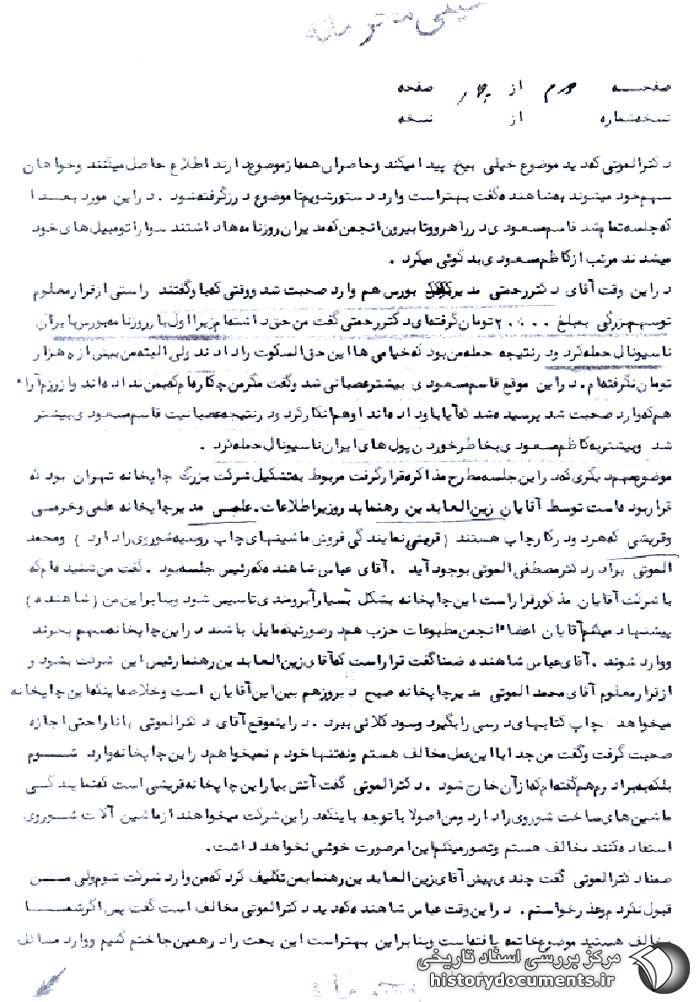 خیلی محرمانه
صفحه دوم از چهار صفحه
نسخه شماره از نسخه
دکتر الموتی که دید موضوع خیلی بیخ پیدا میکند و حاضران همه از موضوع دارند اطلاع حاصل میکنند و خواهان
سهم خود میشوند به شاهنده گفت بهتر است وارد دستور شویم تا موضوع درز گرفته شود . در این مورد بعد ا
که جلسه تمام شد قاسم مسعودی در راهرو و تا بیرون انجمن که مدیران روزنامه ها داشتند سوار اتومبیل های خود
میشدند مرتب از کاظم مسعودی بدگوئی میکرد .
در این وقت آقای دکتر رحمتی مدیر بورس هم وارد صحبت شد و وقتی که باو گفتند راستی از قرار معلوم
تو سهم بزرگی بمبلغ ۲۰۰۰۰ تومان گرفته ای دکتر رحمتی گفت من حق داشته ام زیرا اول بار روزنامه بورس با ایران
ناسیونال حمله کرد و در نتیجه حمله من بود که خیامی ها این حق السکوت را دادند ولی البته من بیش از ده هزار
تومان نگرفته ام . در این موقع قاسم مسعودی بیشتر عصبانی شد و گفت مگر من چکاره ام که بمن نداده اند و از رزم آرا
هم که وارد صحبت شد پرسیده شد که آیا باو داده اند او هم انکار کرد و در نتیجه عصبانیت قاسم مسعودی بیشتر
شد و بیشتر به کاظم مسعودی بخاطر خوردن پول های ایران ناسیونال حمله کرد .
موضوع مهم دیگری که در این جلسه مطرح مذاکره قرار گرفت مربوط به تشکیل شرکت بزرگ چاپخانه تهران بود که
قرار بوده است توسط آقایان زین العابدین رهنما وزیر اطلاعات - علمی مدیر چاپخانه علمی و خرمی
و قریشی که هر دو در کار چاپ هستند ( قریشی نمایندگی فروش ماشینهای چاپ روسیه شوروی را دارد ) و محمد
الموتی برادر دکتر مصطفی الموتی بوجود آید . آقای عباس شاهنده که رئیس جلسه بود . گفت من شنیده ام که
با شرکت آقایان مذکور قرار است این چاپخانه بشکل بسیار آبرومندی تاسیس شود و بنا بر این من ( شاهنده )
پیشنهاد میکنم آقایان اعضاء انجمن مطبوعات حزب هم در صورتیکه مایل باشند در این چاپخانه سهم بخرند
و وارد شوند . آقای عباس شاهنده ضمنا گفت قرار است که آقای زین العابدین رهنما رئیس این شرکت بشود و
از قرار معلوم آقای محمد الموتی مدیر چاپخانه صبح دیروز هم بین این آقایان است و خلاصه اینکه این چاپخانه
میخواهد چاپ کتابهای درسی را بگیرد و سود کلانی ببرد . در اینموقع آقای دکتر الموتی با ناراحتی اجازه
صحبت گرفت و گفت من جدا با این عمل مخالف هستم و نه تنها خودم نمیخواهم در این چاپخانه وارد شوم
بلکه به برادرم هم گفته ام که از آن خارج شود . دکتر الموتی گفت آتش بیار این چاپخانه قریشی است که نمایندگی
ماشین های ساخت شوروی را دارد و من اصولا با توجه باینکه در این شرکت میخواهند از ماشین آلات شوروی
استفاده کنند مخالف هستم و تصور میکنم این امر صورت خوشی نخواهد داشت .
ضمنا دکتر الموتی گفت چندی پیش آقای زین العابدین رهنما بمن تکلیف کرد که من وارد شرکت شوم ولی من
قبول نکردم و عذر خواستم . در این وقت عباس شاهنده که دید دکتر الموتی مخالف است گفت پس اگر شما
مخالف هستید موضوع خاتمه یافته است و بنا بر این بهتر است این بحث را در همین جا ختم کنیم و وارد مسائل
مرکز بررسی اسناد تاریخی
historydocuments.ir